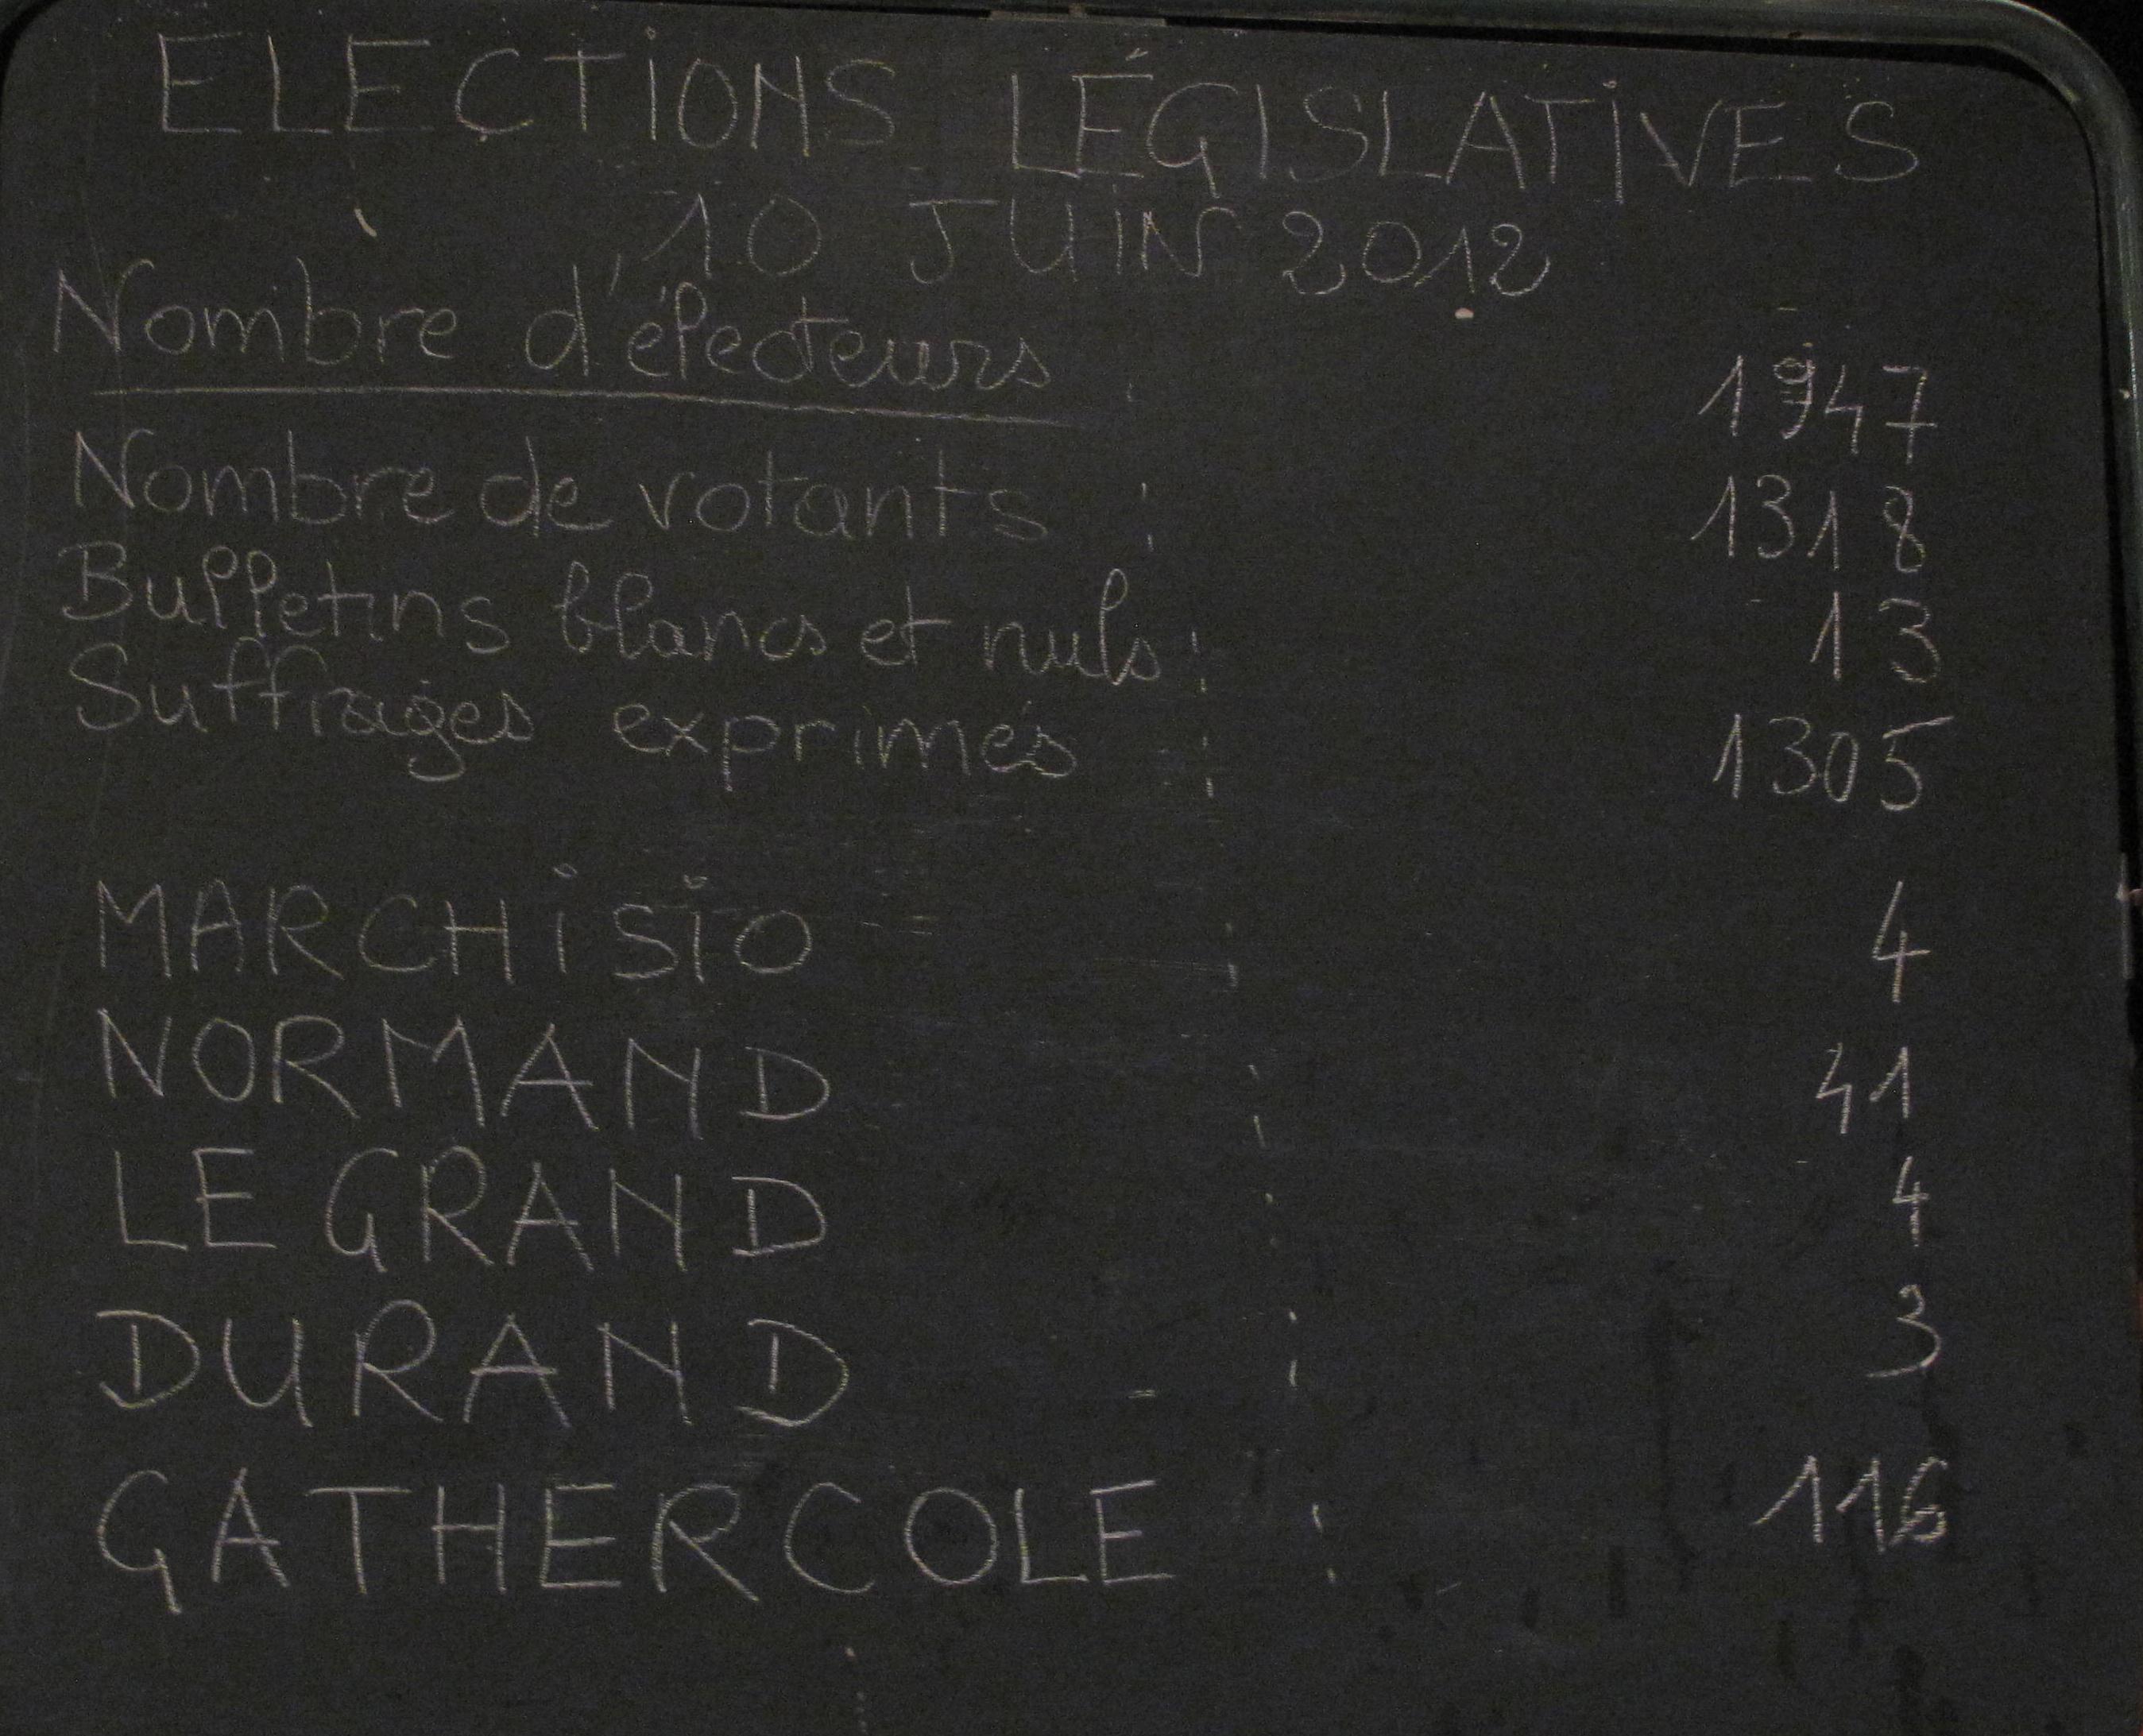 ELECTIONS LÉGISLATIVES
10 JUIN 2012
Nombre d'électeurs : 1947
Nombre de votants : 1318
Bulletins blancs et nuls : 13
Suffrages exprimés : 1305
MARCHiSiO : 4
NORMAND : 41
LE GRAND : 4
DURAND : 3
GATHERCOLE : 116